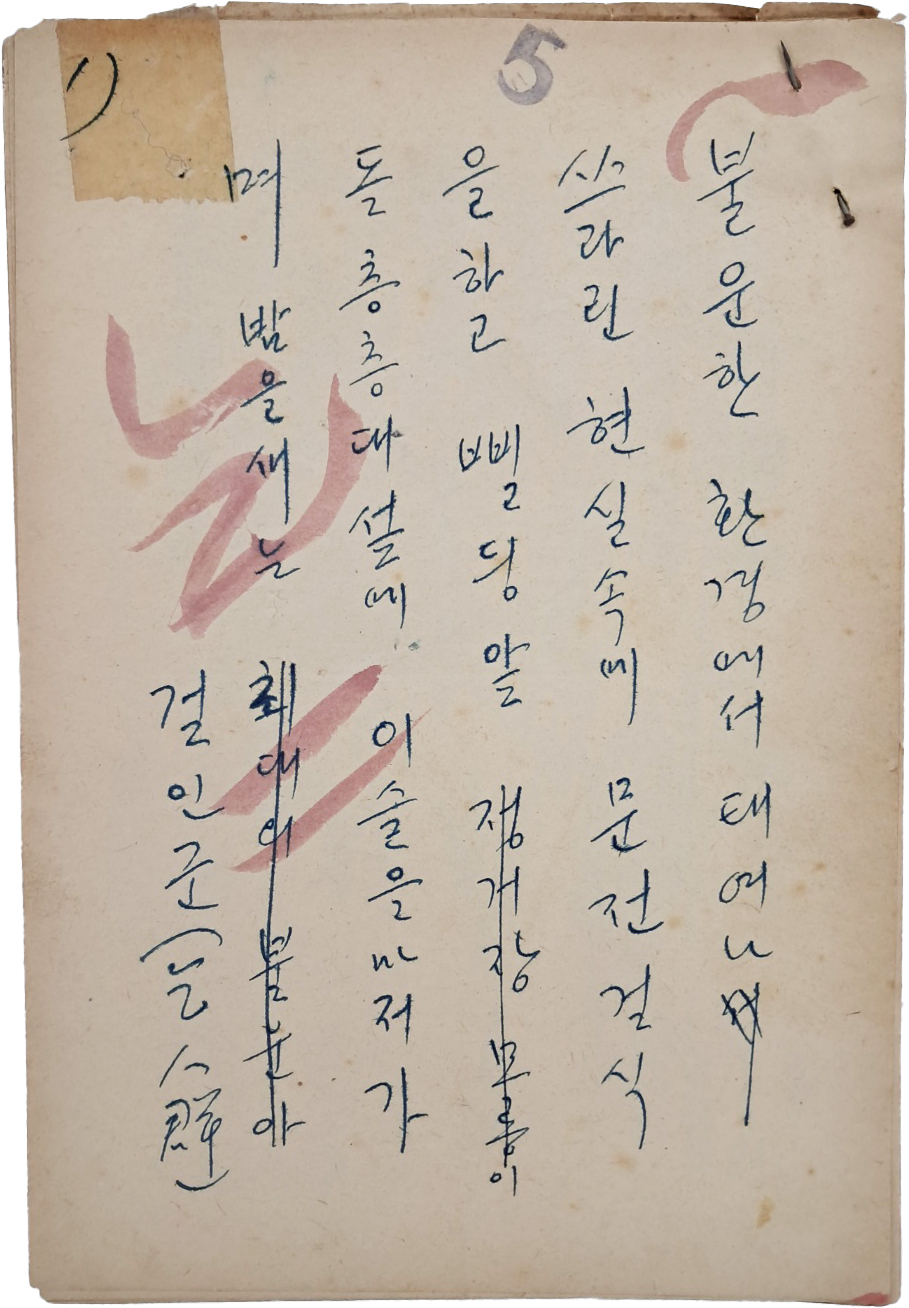 5
1)
불운한 환경에서 태여나
쓰라린 현실속에 문전걸식
을하고 삘딍앞 정거장 모퉁이
돌층층대 섶에 이슬을마저가
며 밤을새는 최대의 불운아
걸인군(乞人群)